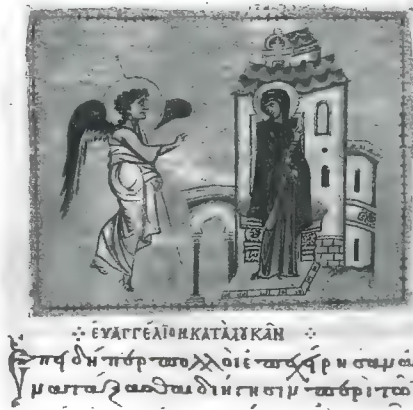 ⁘ ΕΥΑΓΓΈΛΙΟΝ ΚΑΤΑ ΛΟΥΚΑΝ ⁘
Ἐπειδήπερ πολλοὶ ἐπεχείρησαν ἀ
νατάξασθαι διήγησιν περὶ τῶν